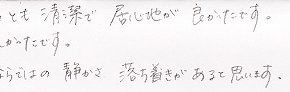 とも 清潔で 居心地が 良かったです。
しかったです。
ならではの 静かさ 落ち着きがあると思います。